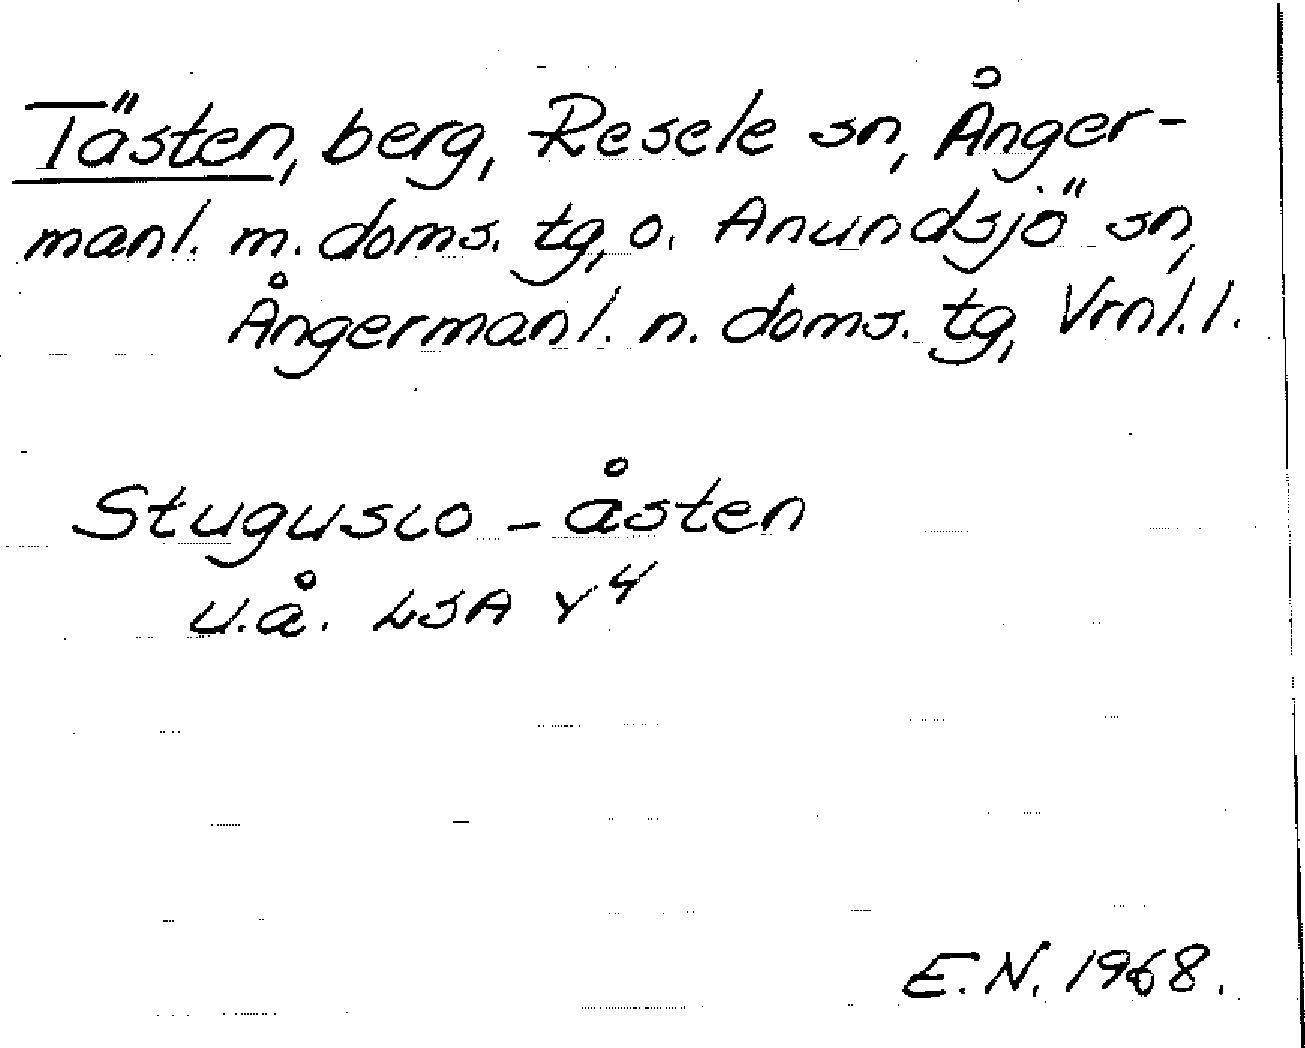 Tästen, berg, Resele sn, Ånger-
manl. m. doms. tg, o. Anundsjö sn,
Ångermanl. n. doms. tg, Vrnl. l.
Stugusco - åsten
u.å. LSA Y4
E.N. 1968.